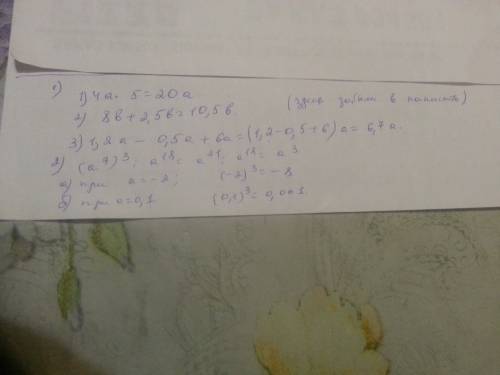 1) 1) 4a · 5 = 20a
2) 8в + 2,5в = 10,5в (здесь забыли в написать)
3) 1,2a - 0,5a + 6a = (1,2-0,5+6)a = 6,7a.
2) (a⁷)³ : a¹⁸ = a²¹ : a¹⁸ = a³
а) при a = -2; (-2)³ = -8
б) при a = 0,1 (0,1)³ = 0,001